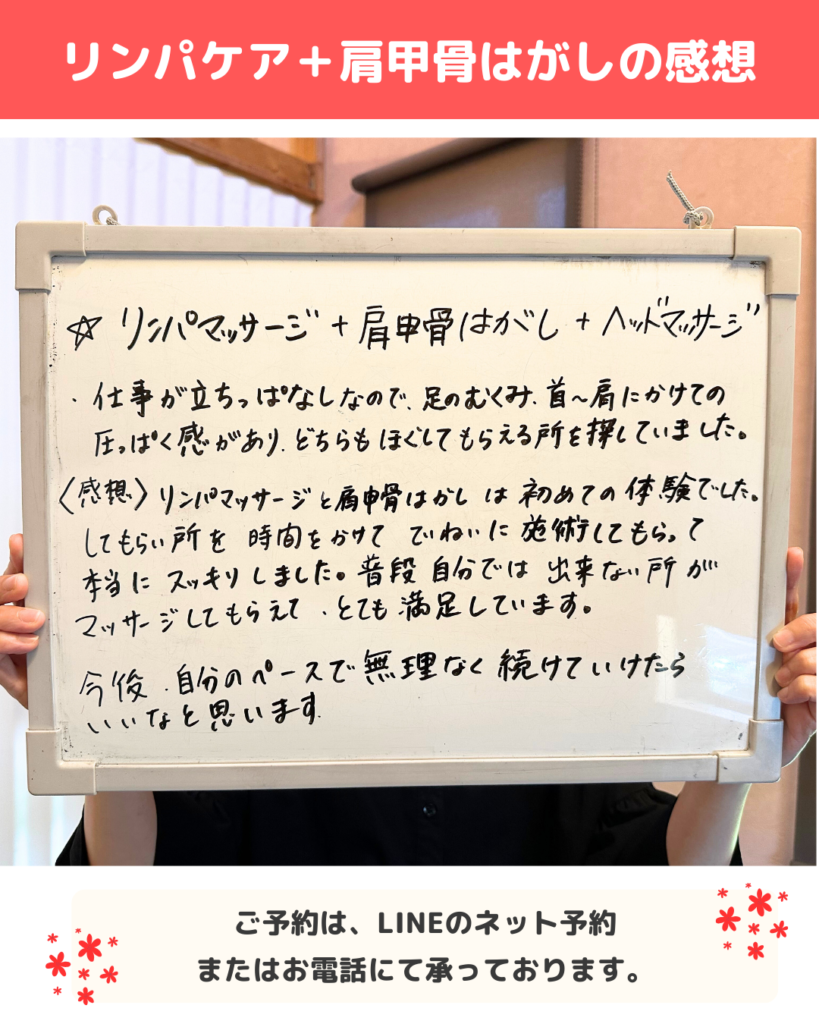 リンパケア＋肩甲骨はがしの感想
☆ リンパマッサージ + 肩甲骨はがし + ヘッドマッサージ
・仕事が立ちっぱなしなので、足のむくみ、首〜肩にかけての
圧っぱく感があり、どちらもほぐしてもらえる所を探していました。
〈感想〉リンパマッサージと肩甲骨はがしは初めての体験でした。
してもらい所を時間をかけてていねいに施術してもらって
本当にスッキリしました。普段自分では出来ない所が
マッサージしてもらえて、とても満足しています。
今後、自分のペースで無理なく続けていけたら
いいなと思います。
ご予約は、LINEのネット予約
またはお電話にて承っております。